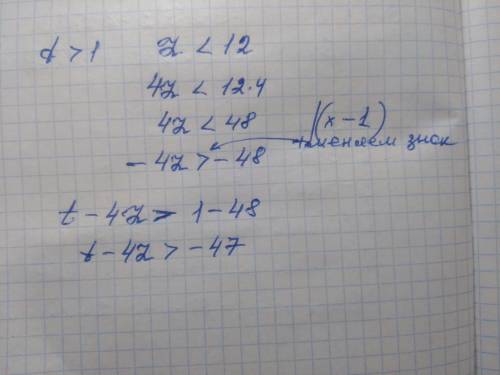 t > 1   z < 12
4z < 12·4
4z < 48
|(x - 1)
- 4z > - 48   меняем знак
t - 4z > 1 - 48
t - 4z > - 47